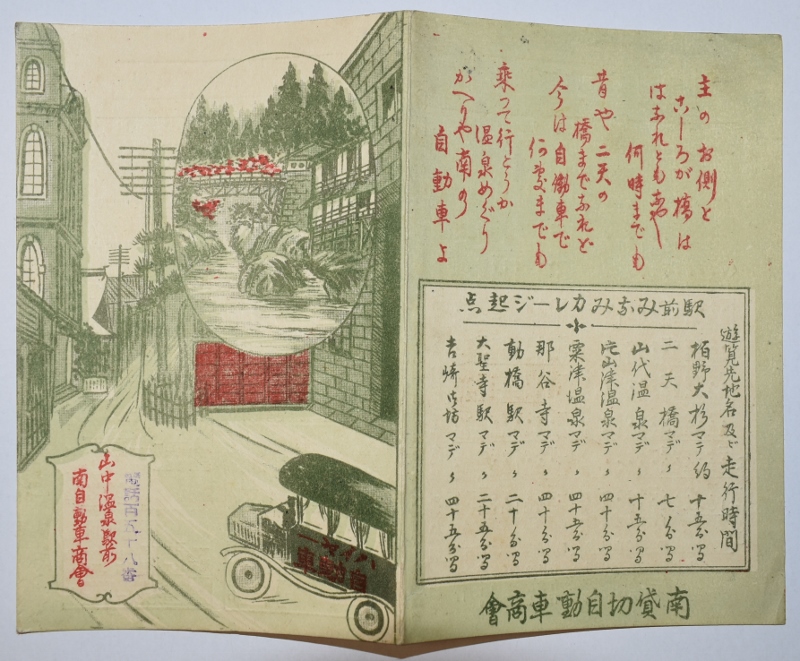 主のお側と
こーろが橋は
はなれともなや
何時までも
昔や二天の
橋までなれど
今は自働車で
何処までも
乗って行とうか
温泉めぐり
かへりや南の
自動車よ
駅前みなみガレージ起点
遊覧先地名及ビ走行時間
栢野大杉マデ約 十五分間
二天橋マデ〃 七分間
山代温泉マデ〃 十五分間
片山津温泉マデ〃 四十分間
粟津温泉マデ〃 四十五分間
那谷寺マデ〃 四十分間
動橋駅マデ〃 二十分間
大聖寺駅マデ〃 二十五分間
吉崎御坊マデ〃 四十五分間
南貸切自動車商會
ハイヤー
自動車
電話百五十八番
山中温泉駅前
南自動車商會